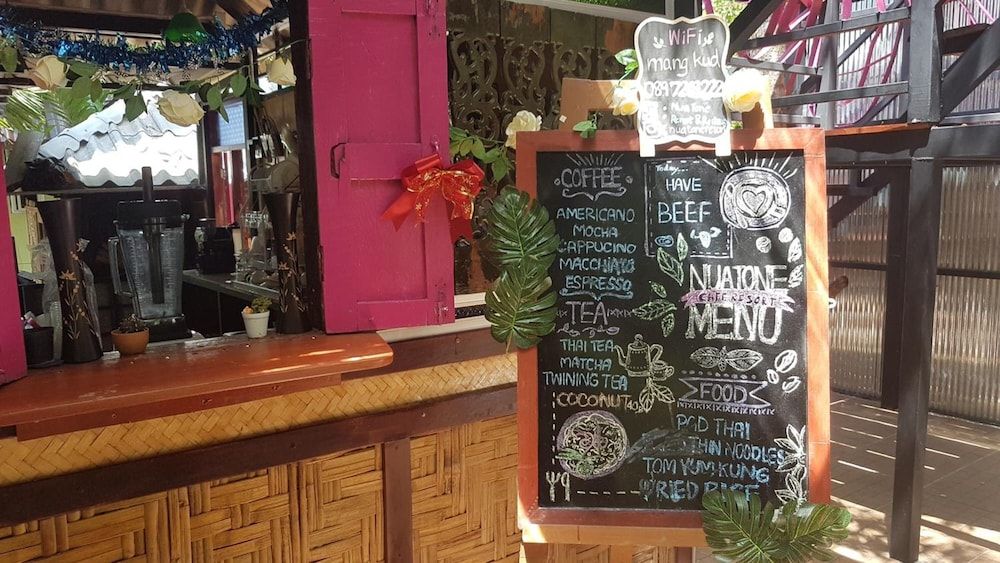 WiFi
mang kud
COFFEE
AMERICANO
MOCHA
CAPPUCINO
MACCHIATO
ESPRESSO
TEA
THAI TEA
MATCHA
TWINING TEA
COCONUT
Today...
HAVE
BEEF
NUATONE
CAFE RESORT
MENU
FOOD
PAD THAI
THIN NOODLES
TOM YUM KUNG
FRIED RICE